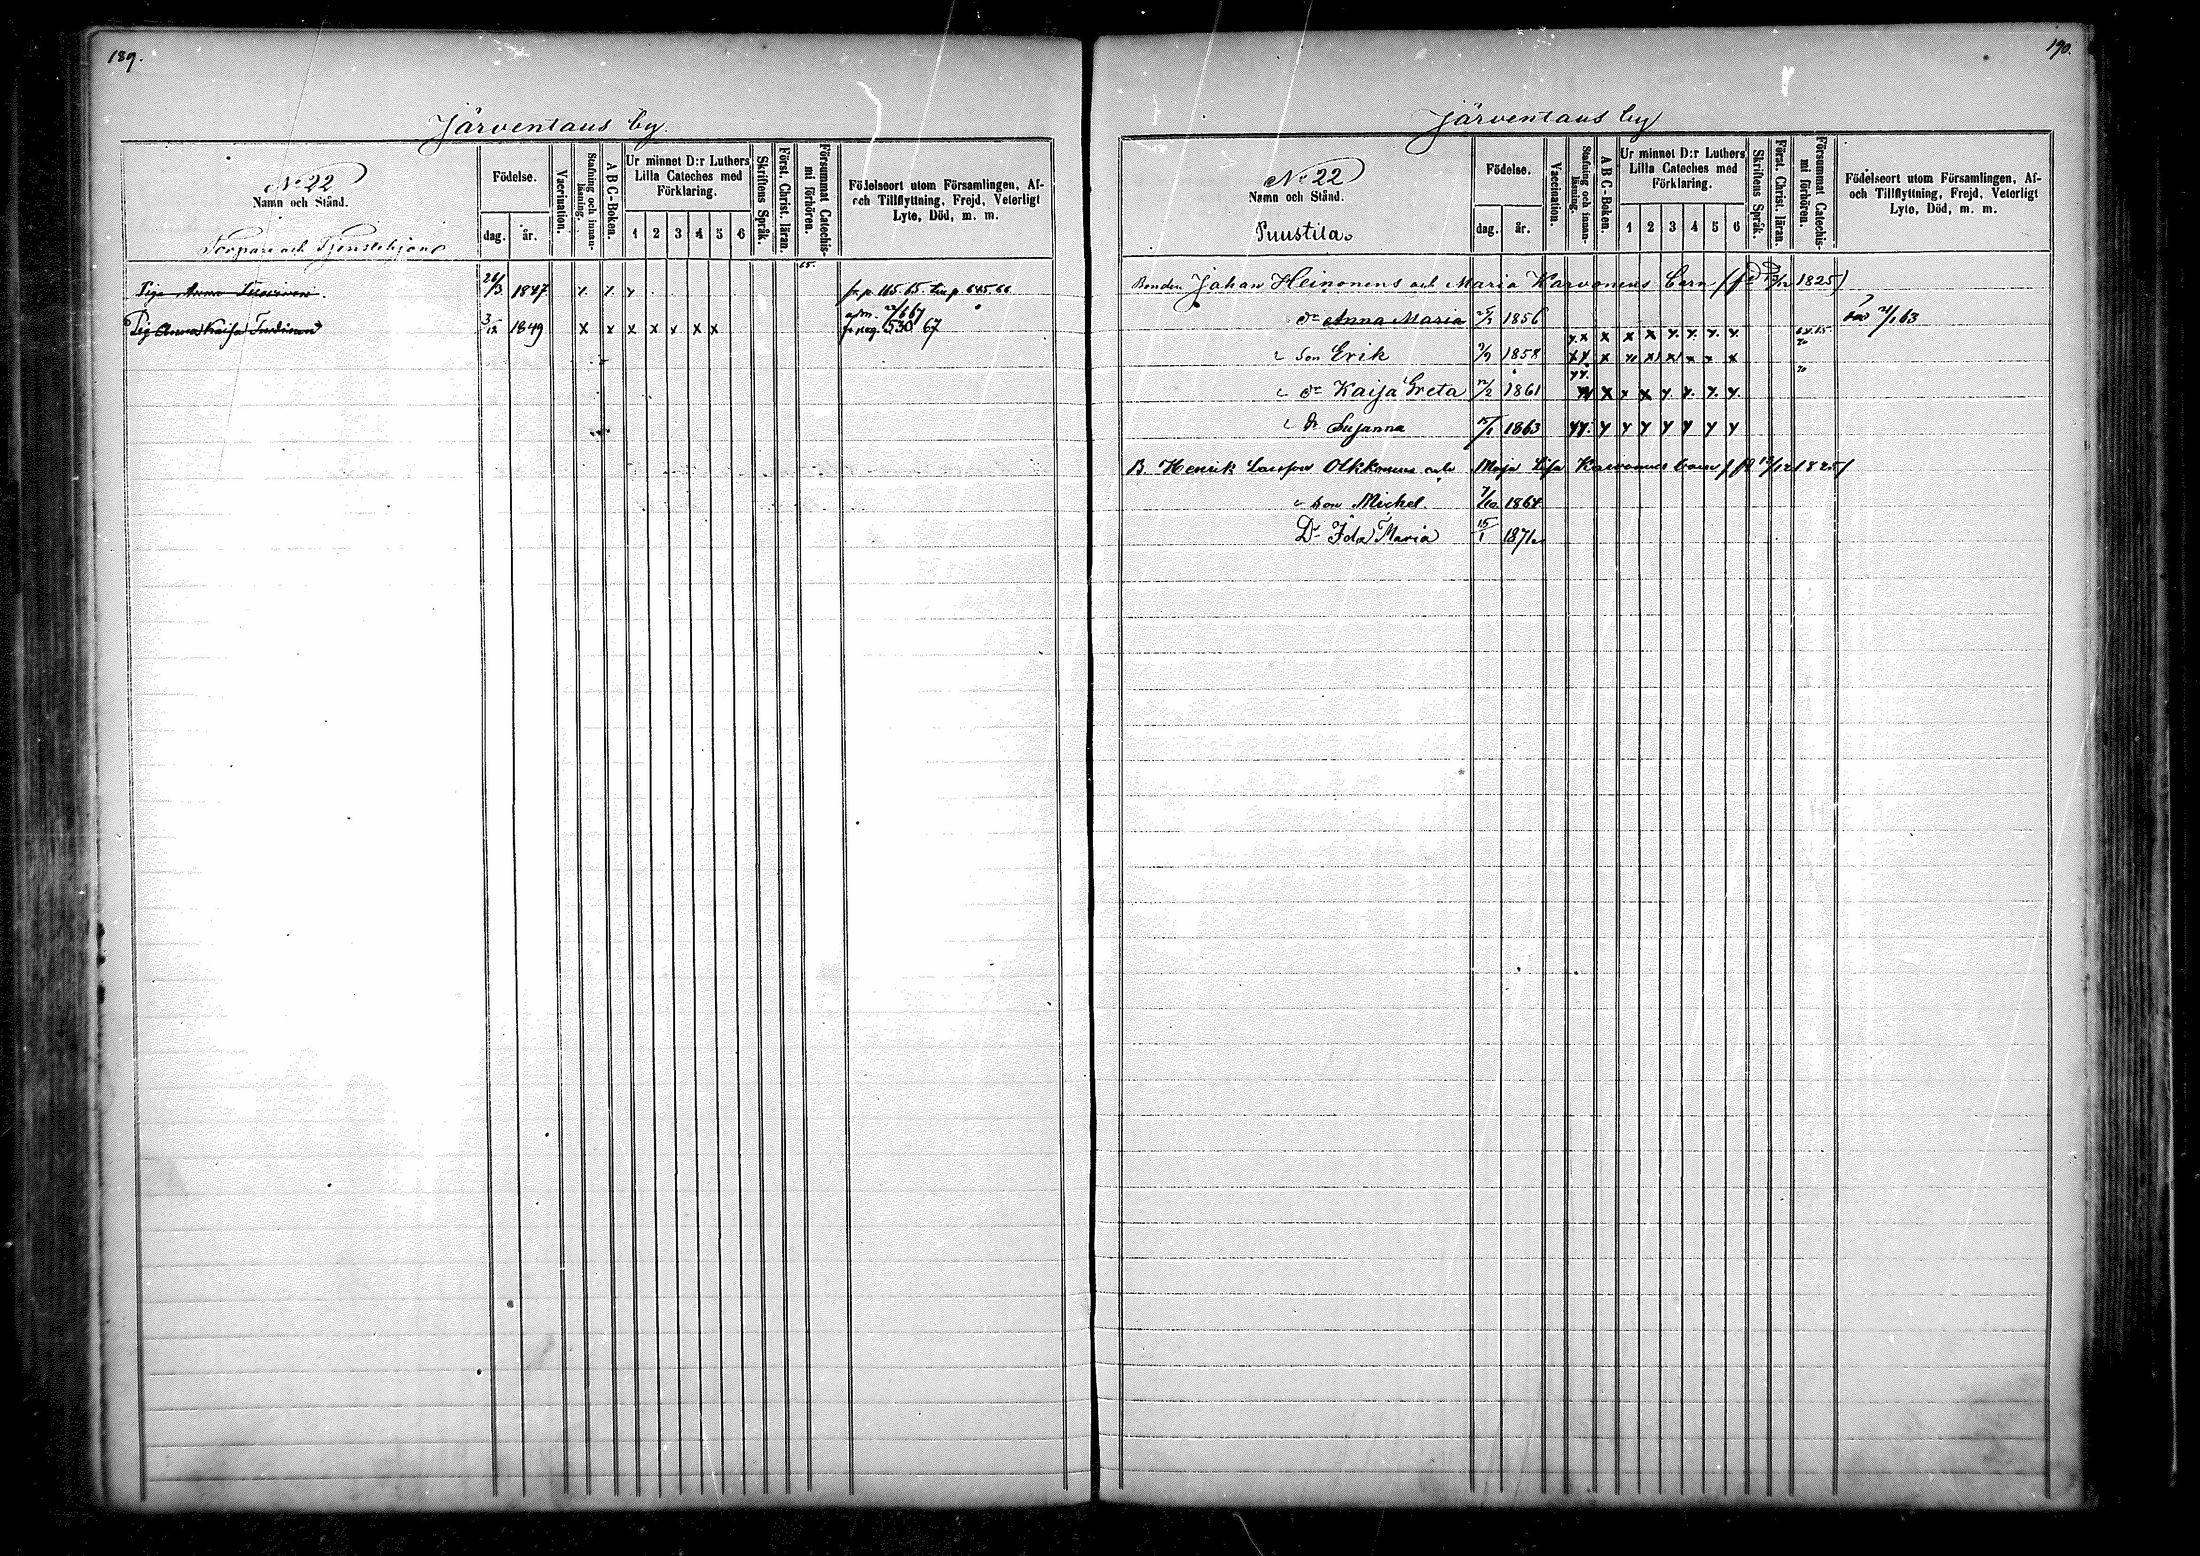 189.
Järventaus by.
No 22
Namn och Stånd.
Torpare och Tjenstehjon
Födelse.
dag.
år.
Vaccination.
Stafning och innan-
läsning.
A B C-Boken.
Ur minnet D:r Luthers
Lilla Cateches med
Förklaring.
1 2 3 4 5 6
Skriftens Språk.
Först. Christ. läran.
Försummat Catechis-
mi förhören.
Födelseort utom Församlingen, Af-
och Tillflyttning, Frejd, Veterligt
Lyte, Död, m. m.
65.
Piga Anna 26/3 1847 x x x fr. p. 165. 65.
Pig Anna Kaisa 1849 x x x x x x x fr pag. 530 67
190.
Järventaus by
No 22
Namn och Stånd.
Puustila.
Födelse.
dag.
år.
Vaccination.
Stafning och innan-
läsning.
A B C-Boken.
Ur minnet D:r Luthers
Lilla Cateches med
Förklaring.
1 2 3 4 5 6
Skriftens Språk.
Först. Christ. läran.
Försummat Catechis-
mi förhören.
Födelseort utom Församlingen, Af-
och Tillflyttning, Frejd, Veterligt
Lyte, Död, m. m.
Bonden Johan Heinonens och Maria Karvonens barn 1825)
dr Anna Maria 1856
son Erik 1858 x x x x x x
dr Kaija Greta 12/2 1861 x x x x x x
dr Susanna 1863 x x x x x x
B. Henrik Olkkonens och Maja Lisa Karvonens barn 1825)
son Michel. 7/10 1864
Dr Ida Maria 15/1 1871.